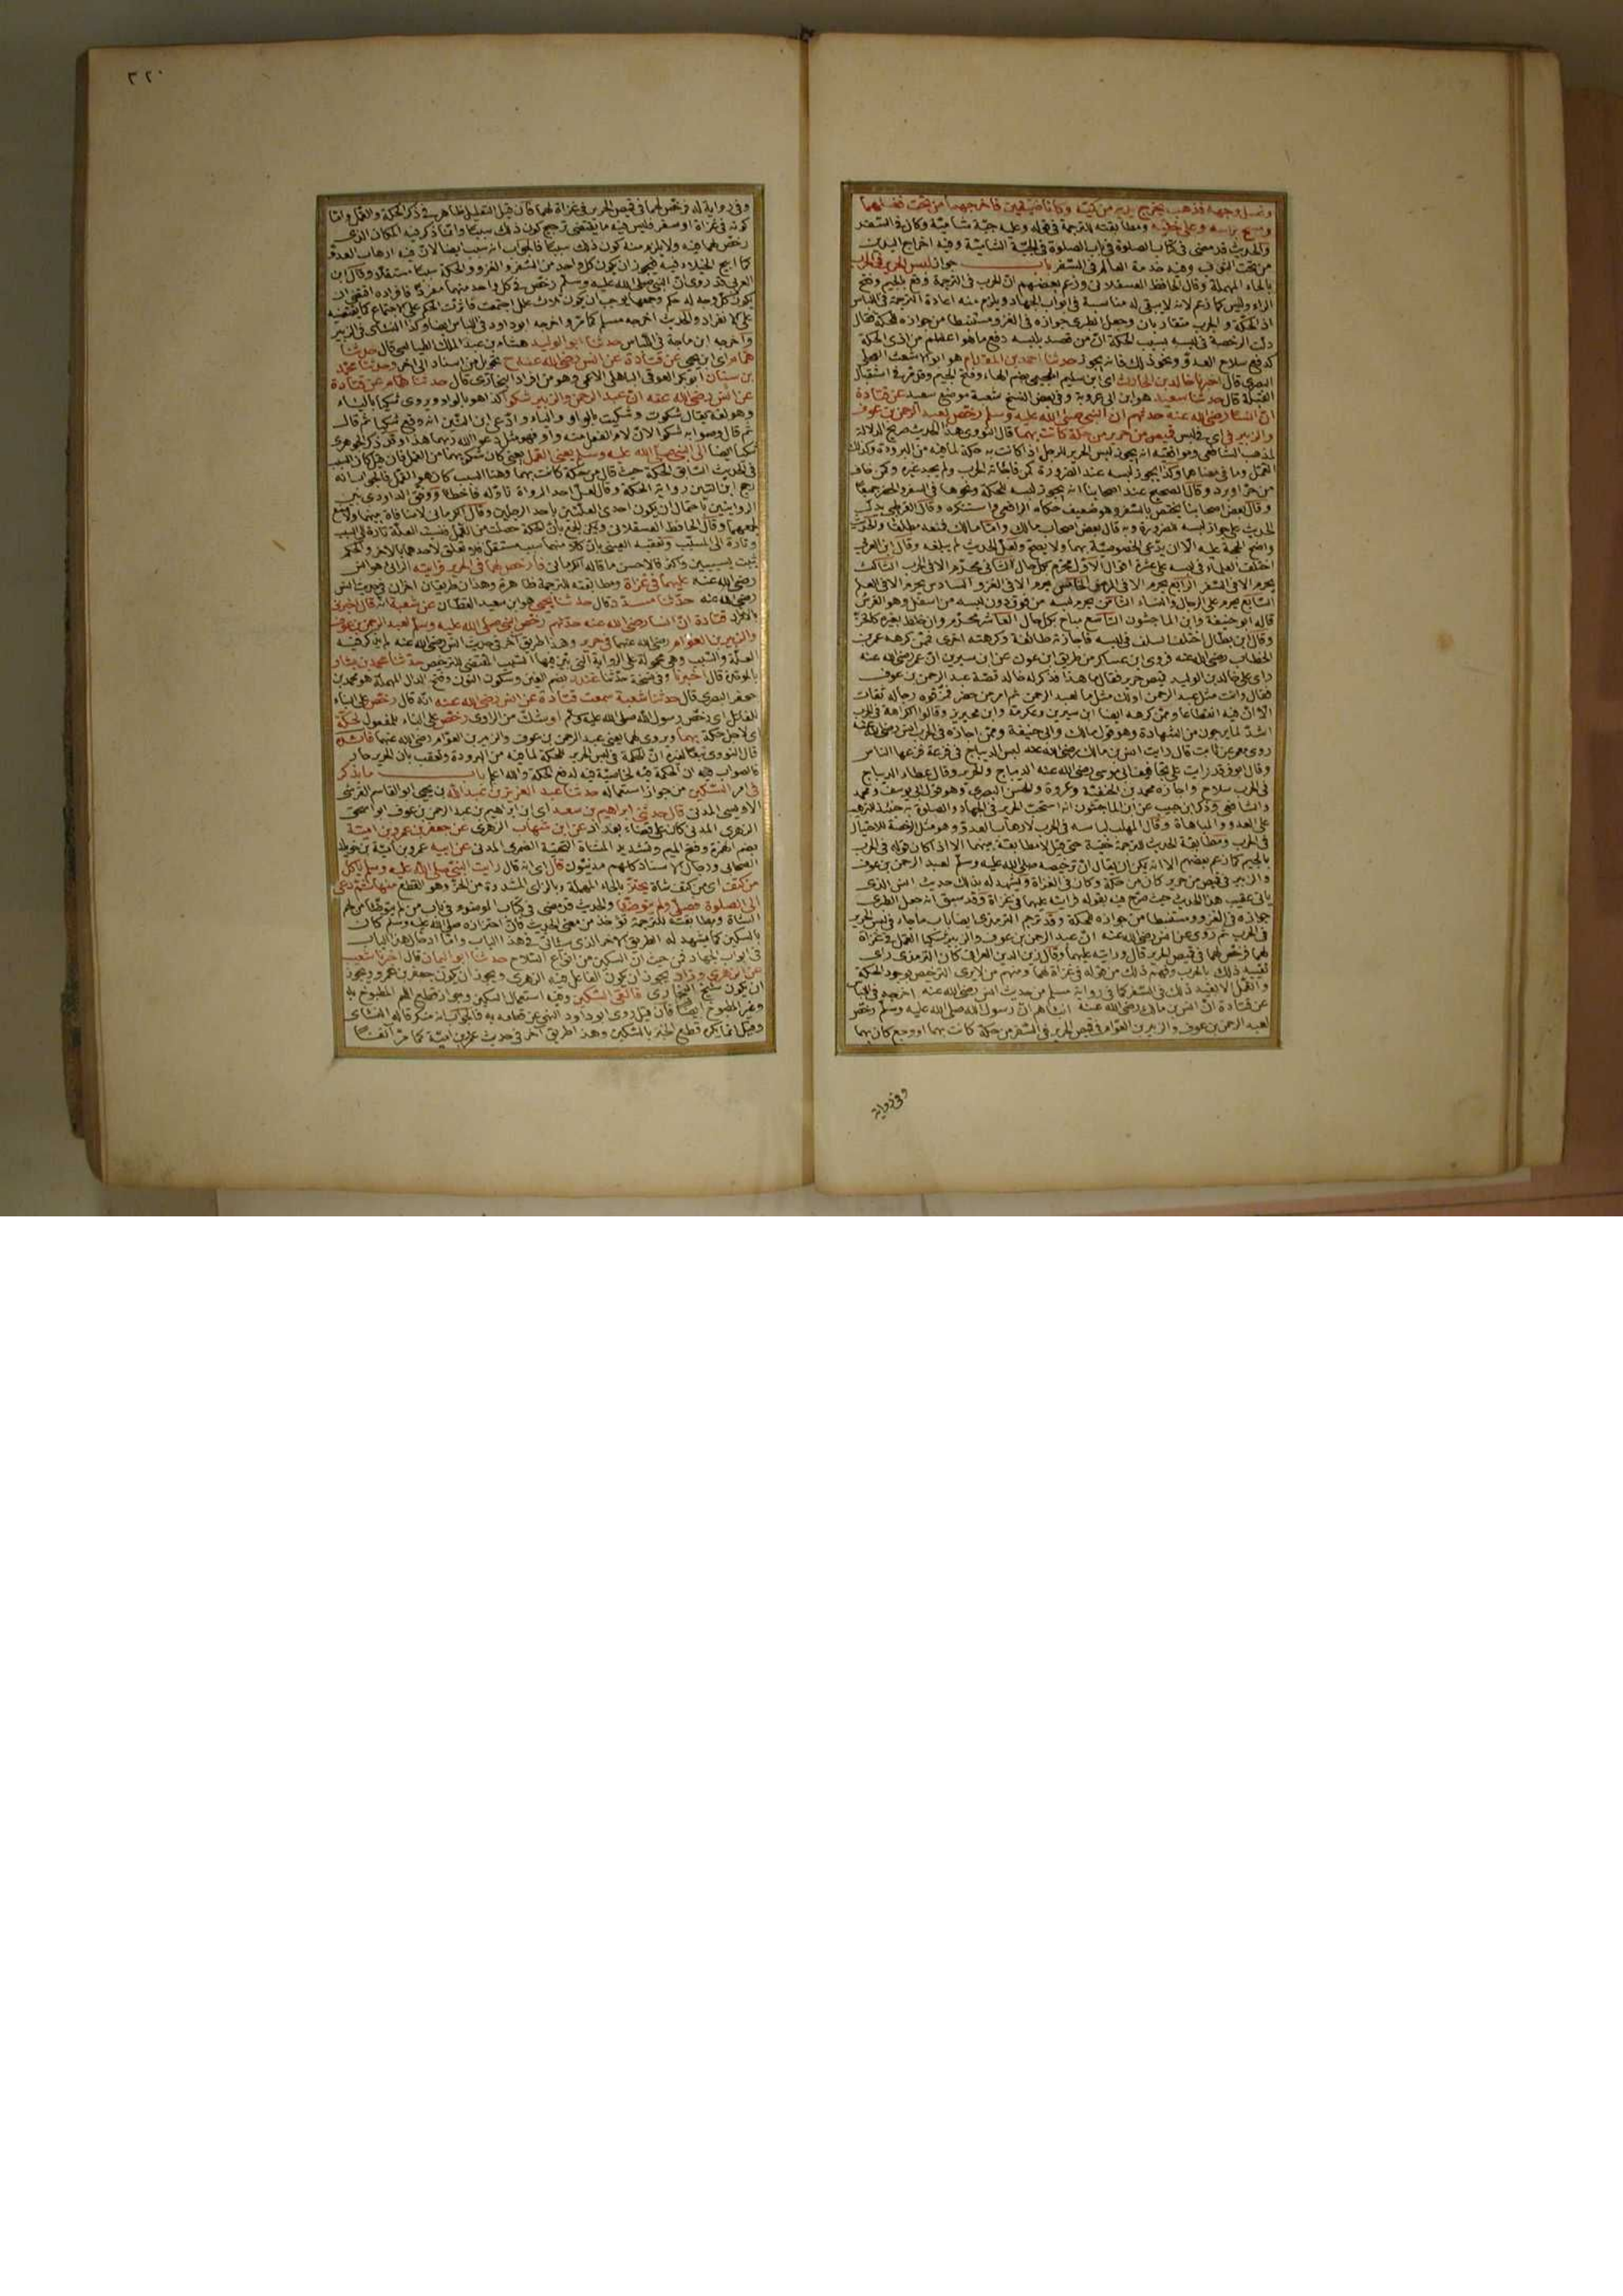 وغسل وجهه فذهب يخرج يديه من كميه وكانا ضيقين فاخرجهما من تحت فغسلهما
ومسح برأسه وعلى خفيه ومطابقته للترجمة في قوله وعليه جبة شامية وكان في السفر
والحديث قد مضى في كتاب الصلوة في باب الصلوة في الجبة الشامية وفيه اخراج اليدين
من تحت الثوب وفيه خدمة العالم في السفر باب جواز لبس الحرير في الحرب
بالحاء المهملة وقال الحافظ العسقلاني وزعم بعضهم ان الحرب في الترجمة وقع بالجيم وفتح
الراء وليس كما زعم لانه لا يبقى له مناسبة في ابواب الجهاد ويلزم منه اعادة الترجمة في اللباس
اذ الحكة والجرب متقاربان وجعل الطبري جوازه في الغزو مستنبطا من جوازه للحكة فقال
دلت الرخصة في لبسه بسبب الحكة ان من قصد بلبسه دفع ما هو اعظم من اذى الحكة
كدفع سلاح العدو ونحو ذلك فانه يجوز حدثنا احمد بن المقدام هو ابو الاشعث العجلي
البصري قال اخبرنا خالد بن الحارث اى ابن سليم الهجيمي بضم الهاء وفتح الجيم وقد مر في استقبال
القبلة قال حدثنا سعيد هو ابن ابي عروبة وفي بعض النسخ شعبة موضع سعيد عن قتادة
ان انسا رضى الله عنه حدثهم ان النبي صلى الله عليه وسلم رخص لعبد الرحمن بن عوف
والزبير في اي في لبس قميص من حرير من حكة كانت بهما قال النووي هذا الحديث صريح الدلالة
لمذهب الشافعي وموافقيه انه يجوز لبس الحرير للرجل اذا كانت به حكة لما فيه من البرودة وكذلك
القمل وما في معناهما وكذا يجوز لبسه عند الضرورة كمن فاجأته الحرب ولم يجد غيره وكمن خاف
من حر او برد وقال الصحيح عند اصحابنا انه يجوز لبسه للحكة ونحوها في السفر والحضر جميعا
وقال بعض اصحابنا يختص بالسفر وهو ضعيف حكاه الرافعي واستنكره وقال القرطبي يدل
الحديث على جواز لبسه للضرورة وبه قال بعض اصحاب مالك واما مالك فمنعه مطلقا والحديث
واضح الحجة عليه الا ان يدعى الخصوصية بهما ولا يصح ولعل الحديث لم يبلغه وقال ابن العربي
اختلف العلماء في لبسه على عشرة اقوال الاول محرم بكل حال الثاني محرم الا في الحرب الثالث
يحرم الا في السفر الرابع يحرم الا في المرض الخامس يحرم الا في الغزو السادس يحرم الا في العلم
السابع يحرم على الرجال والنساء الثامن يحرم لبسه من فوق دون لبسه من اسفل وهو الفرش
قاله ابو حنيفة وابن الماجشون التاسع مباح بكل حال العاشر محرم وان خلط بغيره كالخز
وقال ابن بطال اختلف السلف في لبسه فاجازته طائفة وكرهته اخرى فممن كرهه عمر بن
الخطاب رضى الله عنه فروى ابن عساكر من طريق ابن عون عن ابن سيرين ان عمر رضى الله عنه
راى على خالد بن الوليد قميص حرير فقال ما هذا فذكر له خالد قصة عبد الرحمن بن عوف
فقال وانت مثل عبد الرحمن اولك مثل ما لعبد الرحمن ثم امر من حضر فمزقوه رجاله ثقات
الا ان فيه انقطاعا وممن كرهه ايضا ابن سيرين وعكرمة وابن محيريز وقالوا الكراهة في الحرب
اشد لما يرجون من الشهادة وهو قول مالك وابي حنيفة وممن اجازه في الحرب انس رضى الله عنه
روى معمر عن ثابت قال رايت انس بن مالك رضى الله عنه لبس الديباج في فزعة فزعها الناس
وقال ابو فرقد رايت على تجافيف ابي موسى رضى الله عنه الديباج والحرير وقال عطاء الديباج
في الحرب سلاح واجازه محمد بن الحنفية وعروة والحسن البصري وهو قول ابي يوسف ومحمد
والشافعي وذكر ابن حبيب عن ابن الماجشون انه استحب الحرير في الجهاد والصلوة به حينئذ للترهيب
على العدو والمباهاة وقال المهلب لباسه في الحرب لارهاب العدو وهو مثل الرخصة للاختيال
في الحرب ومطابقة الحديث للترجمة خفية حتى قيل لا مطابقة بينهما الا اذا كان قوله في الحرب
بالجيم كما زعم بعضهم الا انه يمكن ان يقال ان ترخيصه صلى الله عليه وسلم لعبد الرحمن بن عوف
والزبير في قميص من حرير كان من حكة وكان في الغزاة ويشهد له بذلك حديث انس الذي
ياتي عقيب هذا الحديث حيث صرح فيه بقوله فرايته عليهما في غزاة وقد سبق انه جعل الطبري
جوازه في الغزو مستنبطا من جوازه للحكة وقد ترجم الترمذي ايضا باب ما جاء في لبس الحرير
في الحرب ثم روى عن انس رضى الله عنه ان عبد الرحمن بن عوف والزبير شكيا القمل في غزاة
لهما فرخص لهما في قميص الحرير قال ورايته عليهما وقال زين الدين العراقي كان الترمذي راى
تقييد ذلك بالحرب وفهم ذلك من قوله في غزاة لهما ومنهم من لا يرى الترخص بوجود الحكة
والقمل الا بقيد ذلك في السفر كما في رواية مسلم من حديث انس رضى الله عنه اخرجه في اللباس
عن قتادة ان انس بن مالك رضى الله عنه انبأهم ان رسول الله صلى الله عليه وسلم رخص
لعبد الرحمن بن عوف والزبير بن العوام في قميص الحرير في السفر من حكة كانت بهما او وجع كان بهما
وفي رواية
٣٢٠
وفي رواية له فرخص لهما في قميص الحرير في غزاة لهما فان قيل التعليل ظاهر في ذكر الحكة والقمل واما
كونه في غزاة او سفر فليس فيه ما يقتضى ترجيح كون ذلك سببا وانما ذكر فيه المكان الذي
رخص لهما فيه ولا يلزم منه كون ذلك سببا فالجواب انه سبب ايضا لان فيه ارهاب العدو
كما ابيح الخيلاء فيه فيجوز ان يكون كل واحد من السفر والغزو والحكة سببا مستقلا وقال ابن
العربي قد روى ان النبي صلى الله عليه وسلم رخص في كل واحد منهما مفردا فافراده اقتضى ان
يكون كل وجه له حكم وجمعها يوجب ان يكون ثلاث علل اجتمعت فاثرت الحكم على الاجتماع كما يقتضيه
على الانفراد والحديث اخرجه مسلم كما مر واخرجه ابو داود في اللباس ايضا وكذا النسائي في الزينة
واخرجه ابن ماجة في اللباس حدثنا ابو الوليد هشام بن عبد الملك الطيالسي قال حدثنا
همام اى ابن يحيى عن قتادة عن انس رضى الله عنه ح تحويل من اسناد الى اخر وحدثنا محمد
بن سنان ابو بكر العوقي الباهلي الاعمى وهو من افراد البخاري قال حدثنا همام عن قتادة
عن انس رضى الله عنه ان عبد الرحمن والزبير شكوا كذا هو بالواو ويروى شكيا بالياء
وهو لغة يقال شكوت وشكيت بالواو والياء وادعى ابن التين انه وقع شكيا ثم قال
ثم قال وصوابه شكوا لان لام الفعل منه واو فهو مثل دعوا الله ربهما هذا وقد ذكر الجوهري
شكيا ايضا الى النبي صلى الله عليه وسلم يعنى القمل يعنى كان شكويهما من القمل فان قيل كان السبب
في الحديث السابق الحكة حيث قال من حكة كانت بهما وهنا السبب كان هو القمل فالجواب انه
رجح ابن التين رواية الحكة وقال لعل احد الرواة تاوله فاخطأ ووفق الداودي بين
الروايتين باحتمال ان يكون احدى العلتين باحد الرجلين وقال الكرماني لا منافاة بينهما ولا منع
لجمعهما وقال الحافظ العسقلاني ويمكن الجمع بان الحكة حصلت من القمل فنسبت العلة تارة الى السبب
وتارة الى المسبب وتعقبه العيني بان كلا منهما سبب مستقل فلا تعلق لاحدهما بالاخر والحكم
يثبت بسببين واكثر فالاحسن ما قاله الكرماني فارخص لهما في الحرير فرايته الرائي هو انس
رضى الله عنه عليهما في غزاة ومطابقته للترجمة ظاهرة وهذان طريقان اخران في حديث انس
رضى الله عنه حدثنا مسدد قال حدثنا يحيى هو ابن سعيد القطان عن شعبة انه قال اخبرني
بالافراد قتادة ان انسا رضى الله عنه حدثهم رخص النبي صلى الله عليه وسلم لعبد الرحمن بن عوف
والزبير بن العوام رضى الله عنهما في حرير وهذا طريق آخر في حديث انس رضى الله عنه لم يذكر فيه
العلة والسبب وهي محمولة على الرواية التي بين فيها السبب المقتضى للترخيص حدثنا محمد بن بشار
بالموحدة قال اخبرنا وفي نسخة حدثنا غندر بضم الغين وسكون النون وفتح الدال المهملة هو محمد بن
جعفر البصري قال حدثنا شعبة سمعت قتادة عن انس رضى الله عنه انه قال رخص على البناء
للفاعل اي رخص رسول الله صلى الله عليه وسلم او شك من الراوي رخص على البناء للمفعول لحكة
اى لاجل حكة بهما ويروى لهما يعنى عبد الرحمن بن عوف والزبير بن العوام رضى الله عنهما فائدة
قال النووي تبعا لغيره ان الحكمة في لبس الحرير للحكة لما فيه من البرودة وتعقب بان الحرير حار
فالصواب فيه ان الحكمة فيه لخاصية فيه لدفع الحكة والله اعلم باب ما يذكر
في امر السكين من جواز استعماله حدثنا عبد العزيز بن عبد الله بن يحيى ابو القاسم القرشي
الاويسي المدني قال حدثني ابراهيم بن سعد اى ابن ابراهيم بن عبد الرحمن بن عوف ابو اسحق
الزهري المدني كان على قضاء بغداد عن ابن شهاب الزهري عن جعفر بن عمرو بن امية
بضم الهمزة وفتح الميم وتشديد المثناة التحتية الضمري المدني عن ابيه عمرو بن امية بن خويلد
الصحابي ورجال الاسناد كلهم مدنيون قال اى انه قال رايت النبي صلى الله عليه وسلم ياكل
من كتف اى من كتف شاة يحتز بالحاء المهملة وبالزاي المشددة من الحز وهو القطع منها ثم دعى
الى الصلوة فصلى ولم يتوضأ والحديث قد مضى في كتاب الوضوء في باب من لم يتوضأ من لحم
الشاة ومطابقته للترجمة تؤخذ من معنى الحديث فان احتزازه صلى الله عليه وسلم كان
بالسكين كما يشهد له الطريق الاخر الذي سياتي في هذا الباب واما ادخال هذا الباب
في ابواب الجهاد فمن حيث ان السكين من انواع السلاح حدثنا ابو اليمان قال اخبرنا شعيب
عن الزهري وزاد يجوز ان يكون الفاعل فيه الزهري ويجوز ان يكون جعفر بن عمرو ويجوز
ان يكون شيخ البخاري فالقى السكين وفيه استعمال السكين وجواز قطع اللحم المطبوخ به
وغير المطبوخ ايضا فان قيل روى ابو داود النهي عن قطعه به فالجواب انه منكر قاله النسائي
وقيل انما يكره قطع الخبز بالسكين وهذا طريق آخر في حديث عمرو بن امية كما مر آنفا